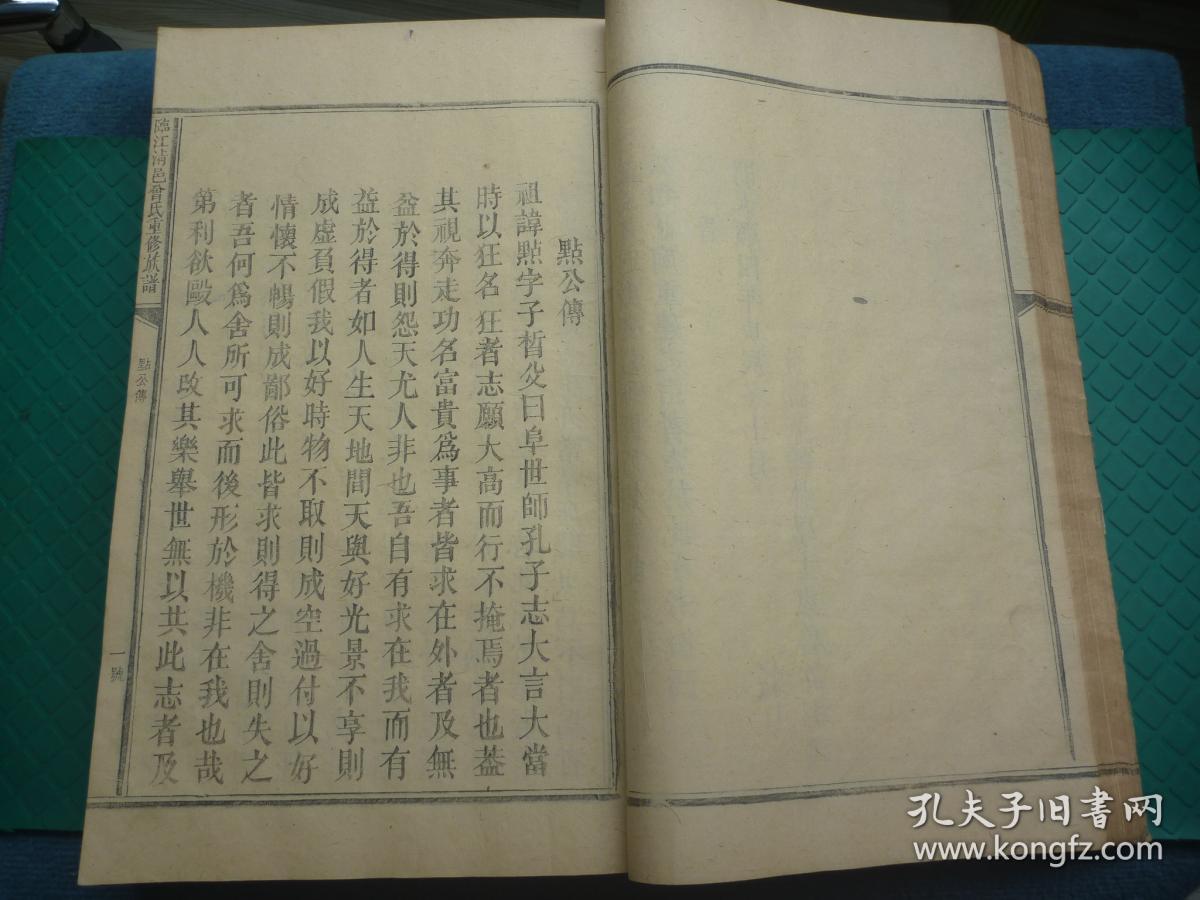 點公傳
祖諱點字子晳父曰阜世師孔子志大言大當
時以狂名狂者志願大高而行不掩焉者也葢
其視奔走功名富貴爲事者皆求在外者及無
益於得則怨天尤人非也吾自有求在我而有
益於得者如人生天地間天與好光景不享則
成虛負假我以好時物不取則成空過付以好
情懷不暢則成鄙俗此皆求則得之舍則失之
者吾何爲舍所可求而後形於機非在我也哉
第利欲毆人人改其樂舉世無以共此志者及
臨江淸邑曾氏重修族譜
點公傳
一號
孔夫子旧书网
www.kongfz.com